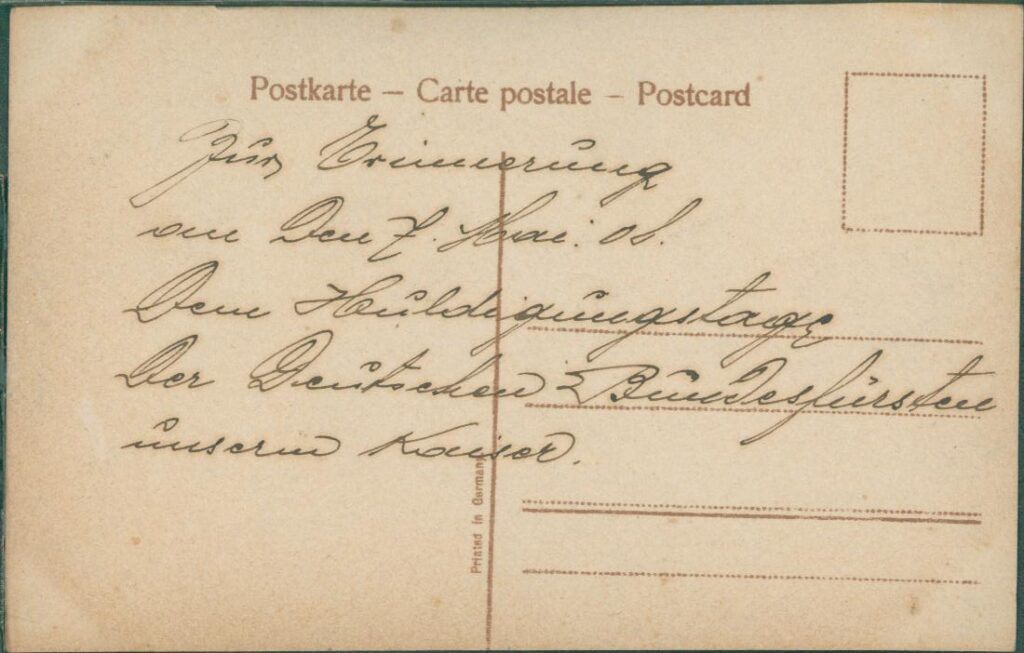 Postkarte – Carte postale – Postcard
Zur Erinnerung
an den 7. Mai. 08.
Dem Huldigungstage
der Deutschen Bundesfürsten
unserm Kaiser.
Printed in Germany